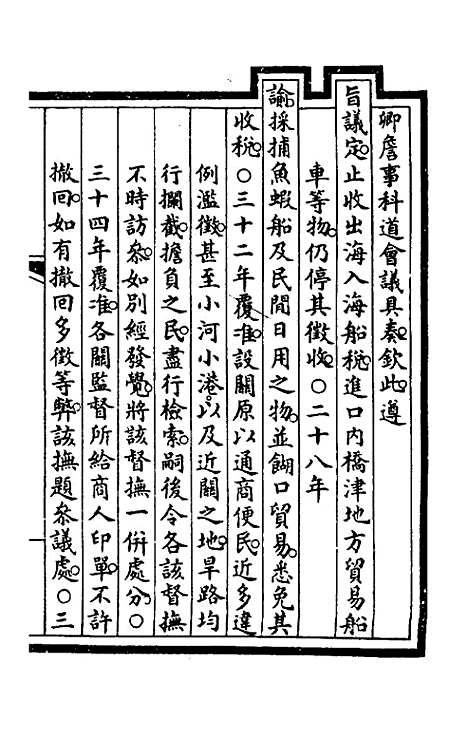 卿詹事科道會議具奏欽此遵
旨議定止收出海入海船稅進口内橋津地方貿易船
車等物仍停其徵收○二十八年
諭採捕魚蝦船及民間日用之物並餬口貿易悉免其
收稅○三十二年覆准設關原以通商便民近多違
例濫徵甚至小河小港以及近關之地旱路均
行攔截擔負之民盡行檢索嗣後令各該督撫
不時訪叅如别經發覺將該督撫一併處分○
三十四年覆准各關監督所給商人印單不許
撤回如有撤回多徵等弊該撫題叅議處○三